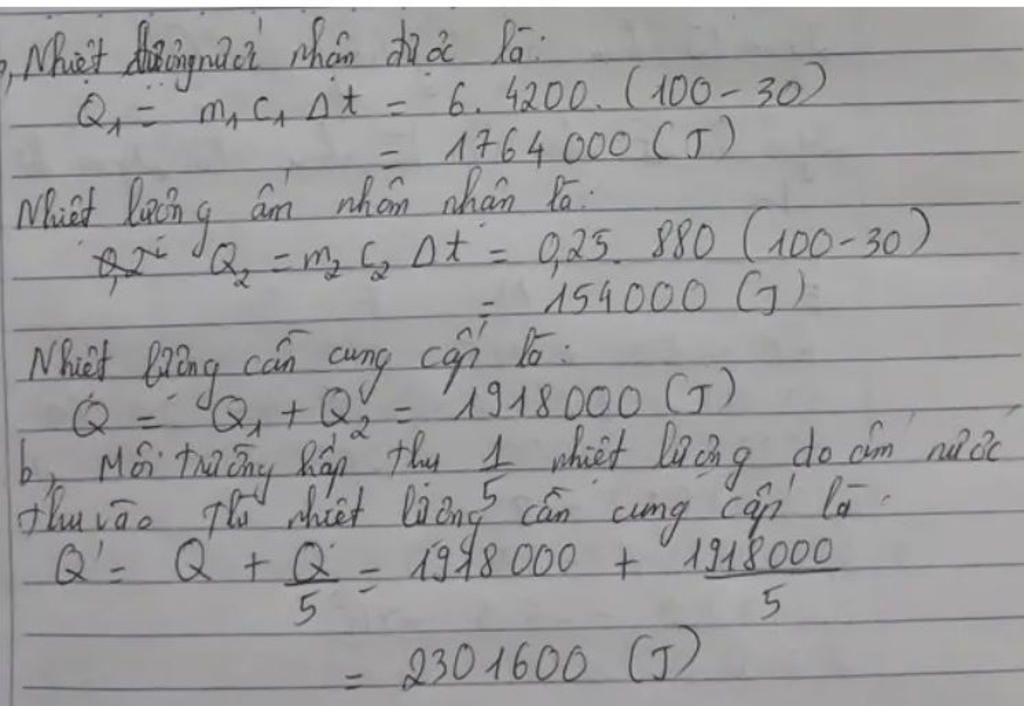 , Nhiệt lượng nước nhận được là:
Q₁ = m₁ c₁ Δt = 6. 4200. (100 - 30)
= 1764 000 (J)
Nhiệt lượng ấm nhôm nhận là:
Q₂ = m₂ c₂ Δt = 0,25. 880 (100 - 30)
= 154000 (J)
Nhiệt lượng cần cung cấp là:
Q = Q₁ + Q₂ = 1918000 (J)
b, Môi trường hấp thu 1/5 nhiệt lượng do ấm nước
thu vào thì nhiệt lượng cần cung cấp là:
Q' = Q + Q/5 = 1918000 + 1918000/5
= 2301600 (J)